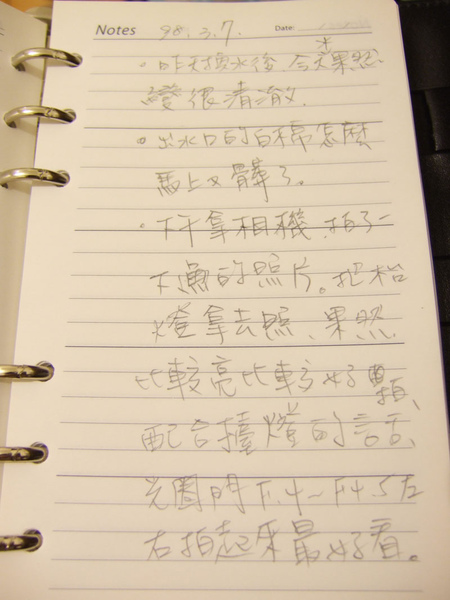 Notes 98.3.7. Date:
。昨天換水後、今天水果然
變很清澈.
。出水口的白棉怎麼
馬上又髒了。
。下午拿相機、拍了一
下魚的照片。把枱
燈拿去照、果然
比較亮比較好拍、
配合檯燈的話、
光圈開F.4~F4.5左
右拍起來最好看。